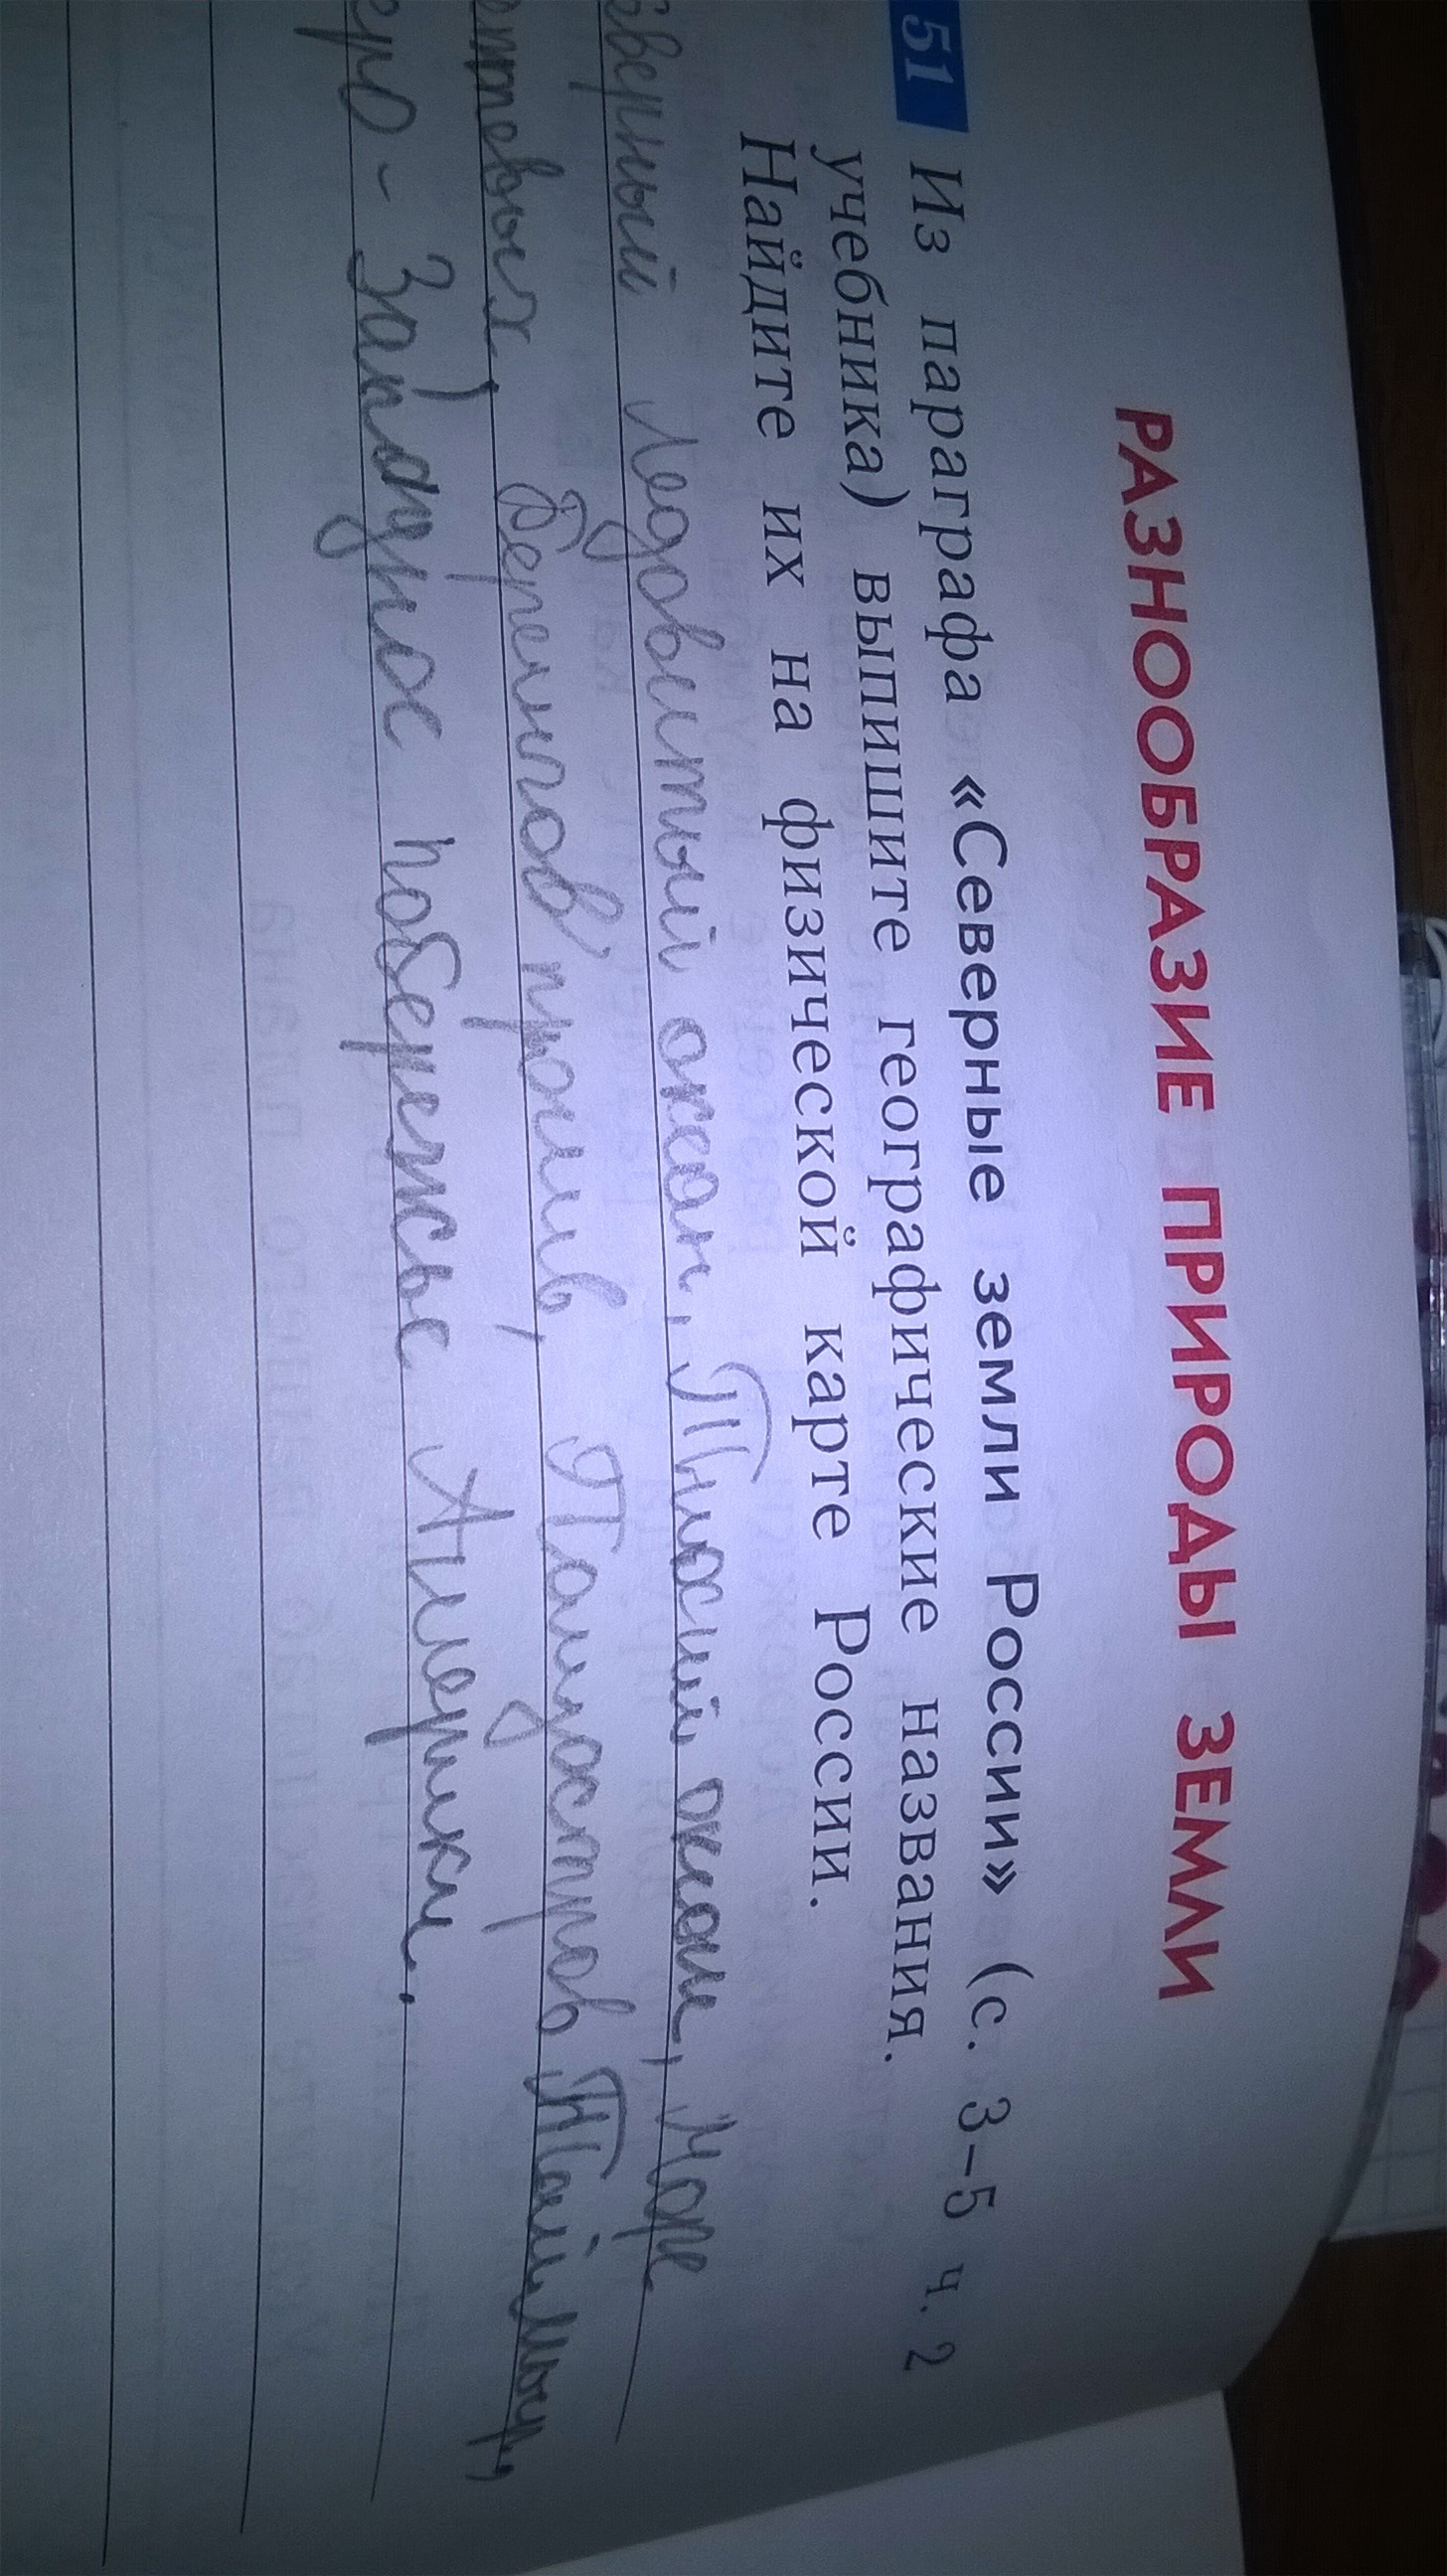 РАЗНООБРАЗИЕ ПРИРОДЫ ЗЕМЛИ
51 Из параграфа «Северные земли России» (с. 3–5 ч. 2
учебника) выпишите географические названия.
Найдите их на физической карте России.
верный Ледовитый океан, Тихий океан, Море
птевых, Берингов пролив, Полуостров Таймыр,
еро - Западное побережье Америки.